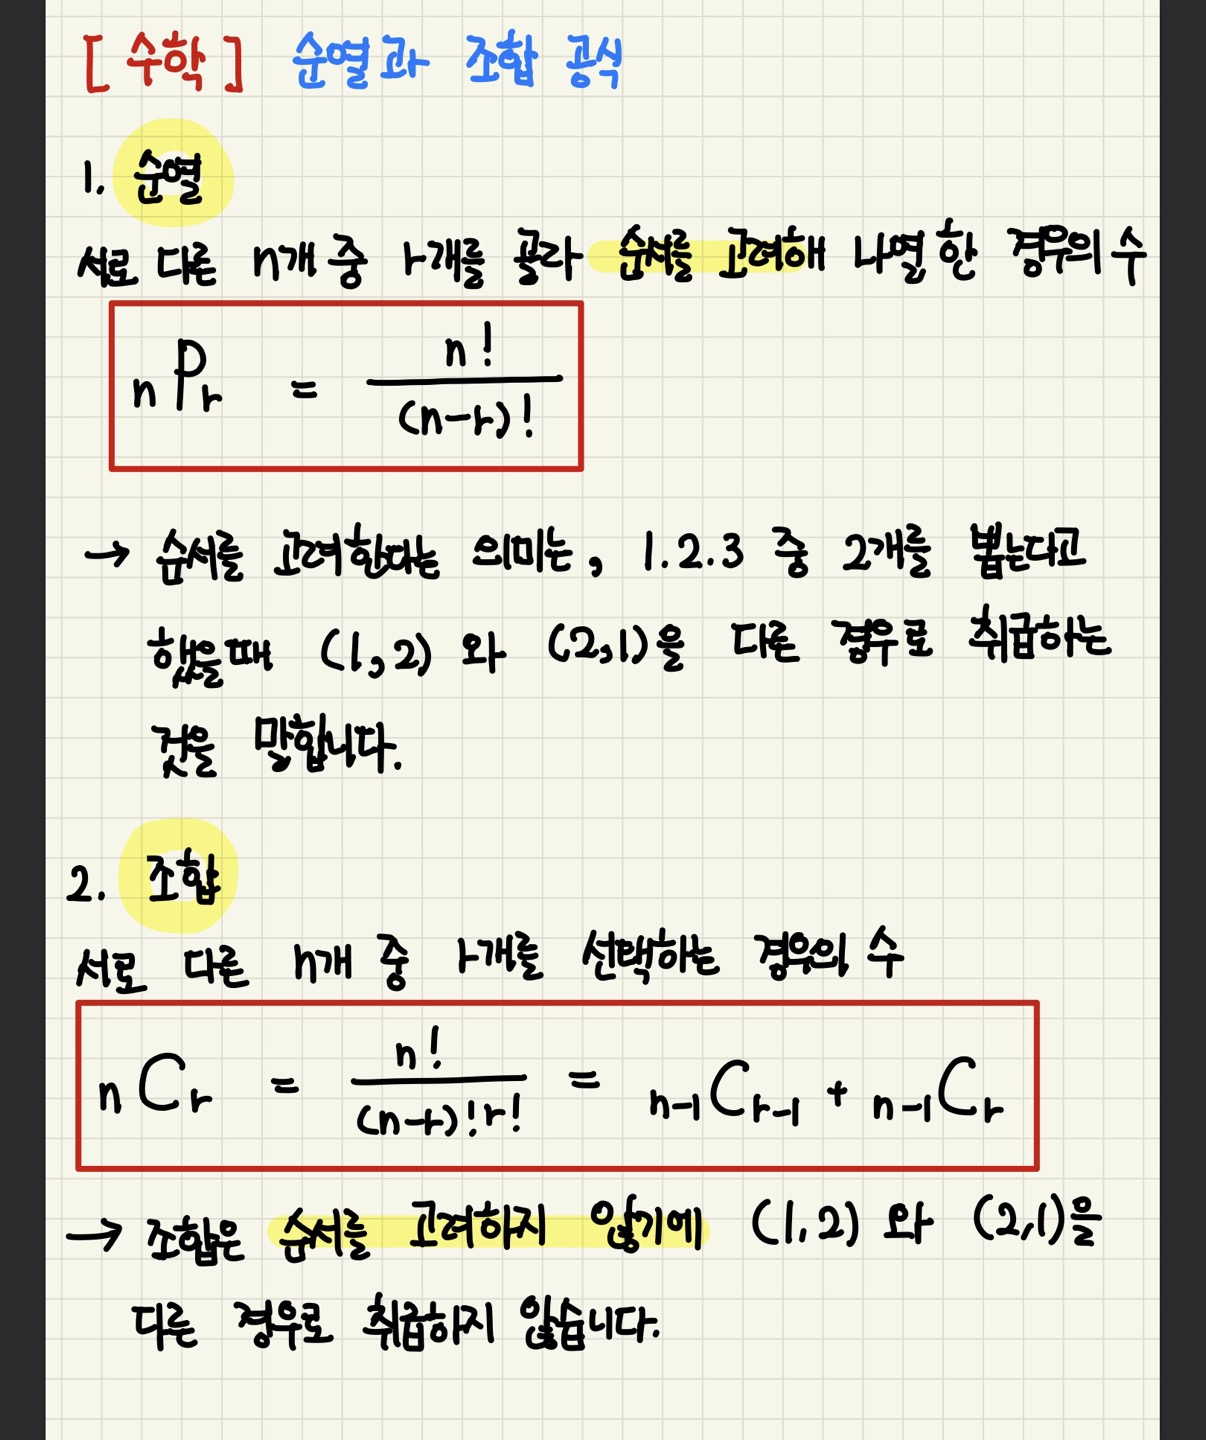 [수학] 순열과 조합 공식
1. 순열
서로 다른 n개 중 r개를 골라 순서를 고려해 나열한 경우의 수
nPr = n! / (n-r)!
→ 순서를 고려한다는 의미는, 1.2.3 중 2개를 뽑는다고
했을때 (1,2) 와 (2,1)을 다른 경우로 취급하는
것을 말합니다.
2. 조합
서로 다른 n개 중 r개를 선택하는 경우의 수
nCr = n! / (n-r)!r! = n-1Cr-1 + n-1Cr
→ 조합은 순서를 고려하지 않기에 (1,2) 와 (2,1)을
다른 경우로 취급하지 않습니다.